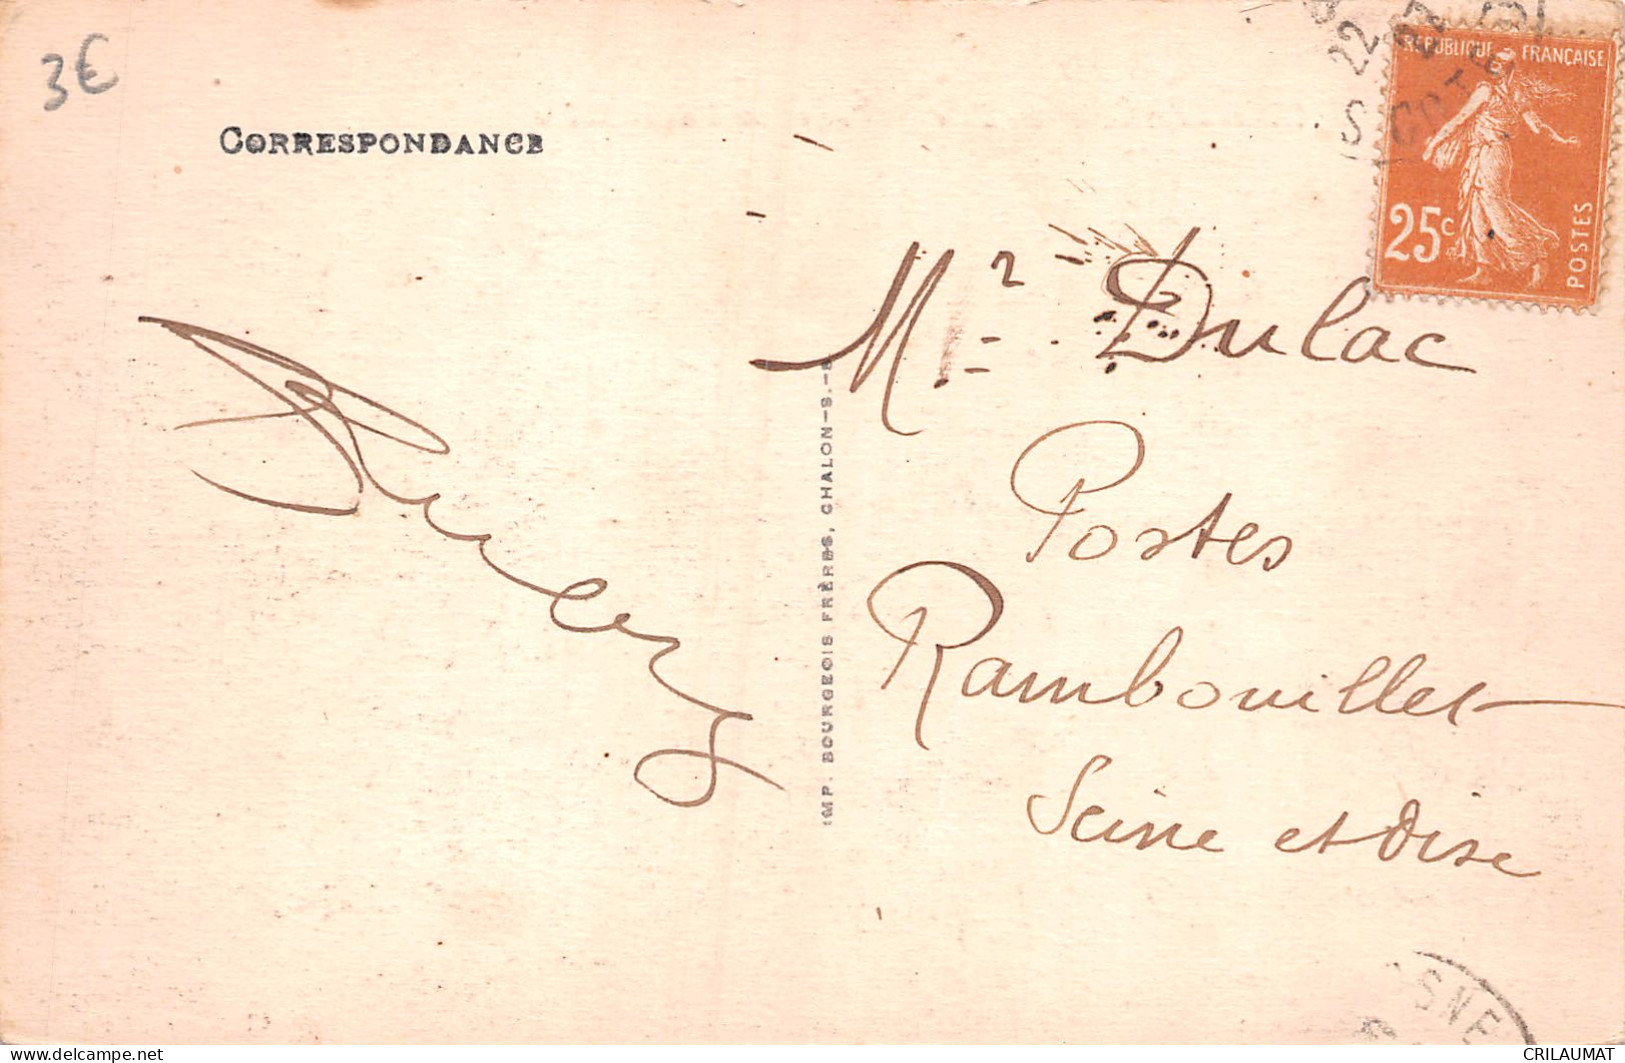 3€
CORRESPONDANCE
RÉPUBLIQUE FRANÇAISE
25c
POSTES
22
Mr Dulac
Postes
Rambouillet
Seine et Oise
IMP. BOURGEOIS FRÈRES, CHALON-S.-S
delcampe.net
CRILAUMAT